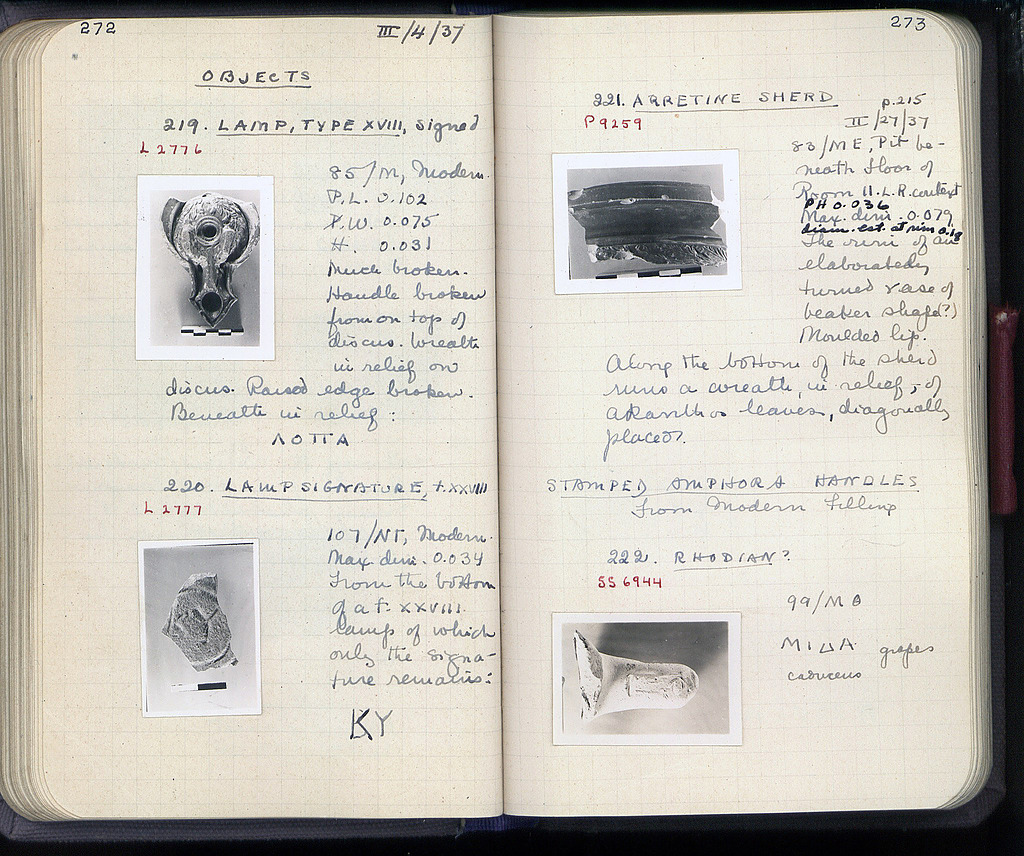 272
III/4/37
OBJECTS
219. LAMP, TYPE XVIII, signed
L 2776
85/M, Modern.
P.L. 0.102
P.W. 0.075
H. 0.031
Much broken.
Handle broken
from on top of
discus. Wreath
in relief on
discus. Raised edge broken.
Beneath in relief:
ΛΟΠΑ
220. LAMP SIGNATURE, t. XXVIII
L 2777
107/ΝΓ, Modern.
Max. dim. 0.034
From the bottom
of a t. XXVIII
lamp of which
only the signa-
ture remains:
KY
273
221. ARRETINE SHERD
p. 215
P 9259
II/27/37
83/ME, Pit be-
neath floor of
Room 11. L.R. context
PH 0.036
Max. dim. 0.079
diam. est. at rim
The rim of an
elaborately
turned vase of
beaker shape(?)
Moulded lip.
Along the bottom of the sherd
runs a wreath, in relief, of
akanthos leaves, diagonally
placed.
STAMPED AMPHORA HANDLES
From Modern Filling
222. RHODIAN?
SS 6944
99/ΜΘ
ΜΙΔΑ grapes
caduceus